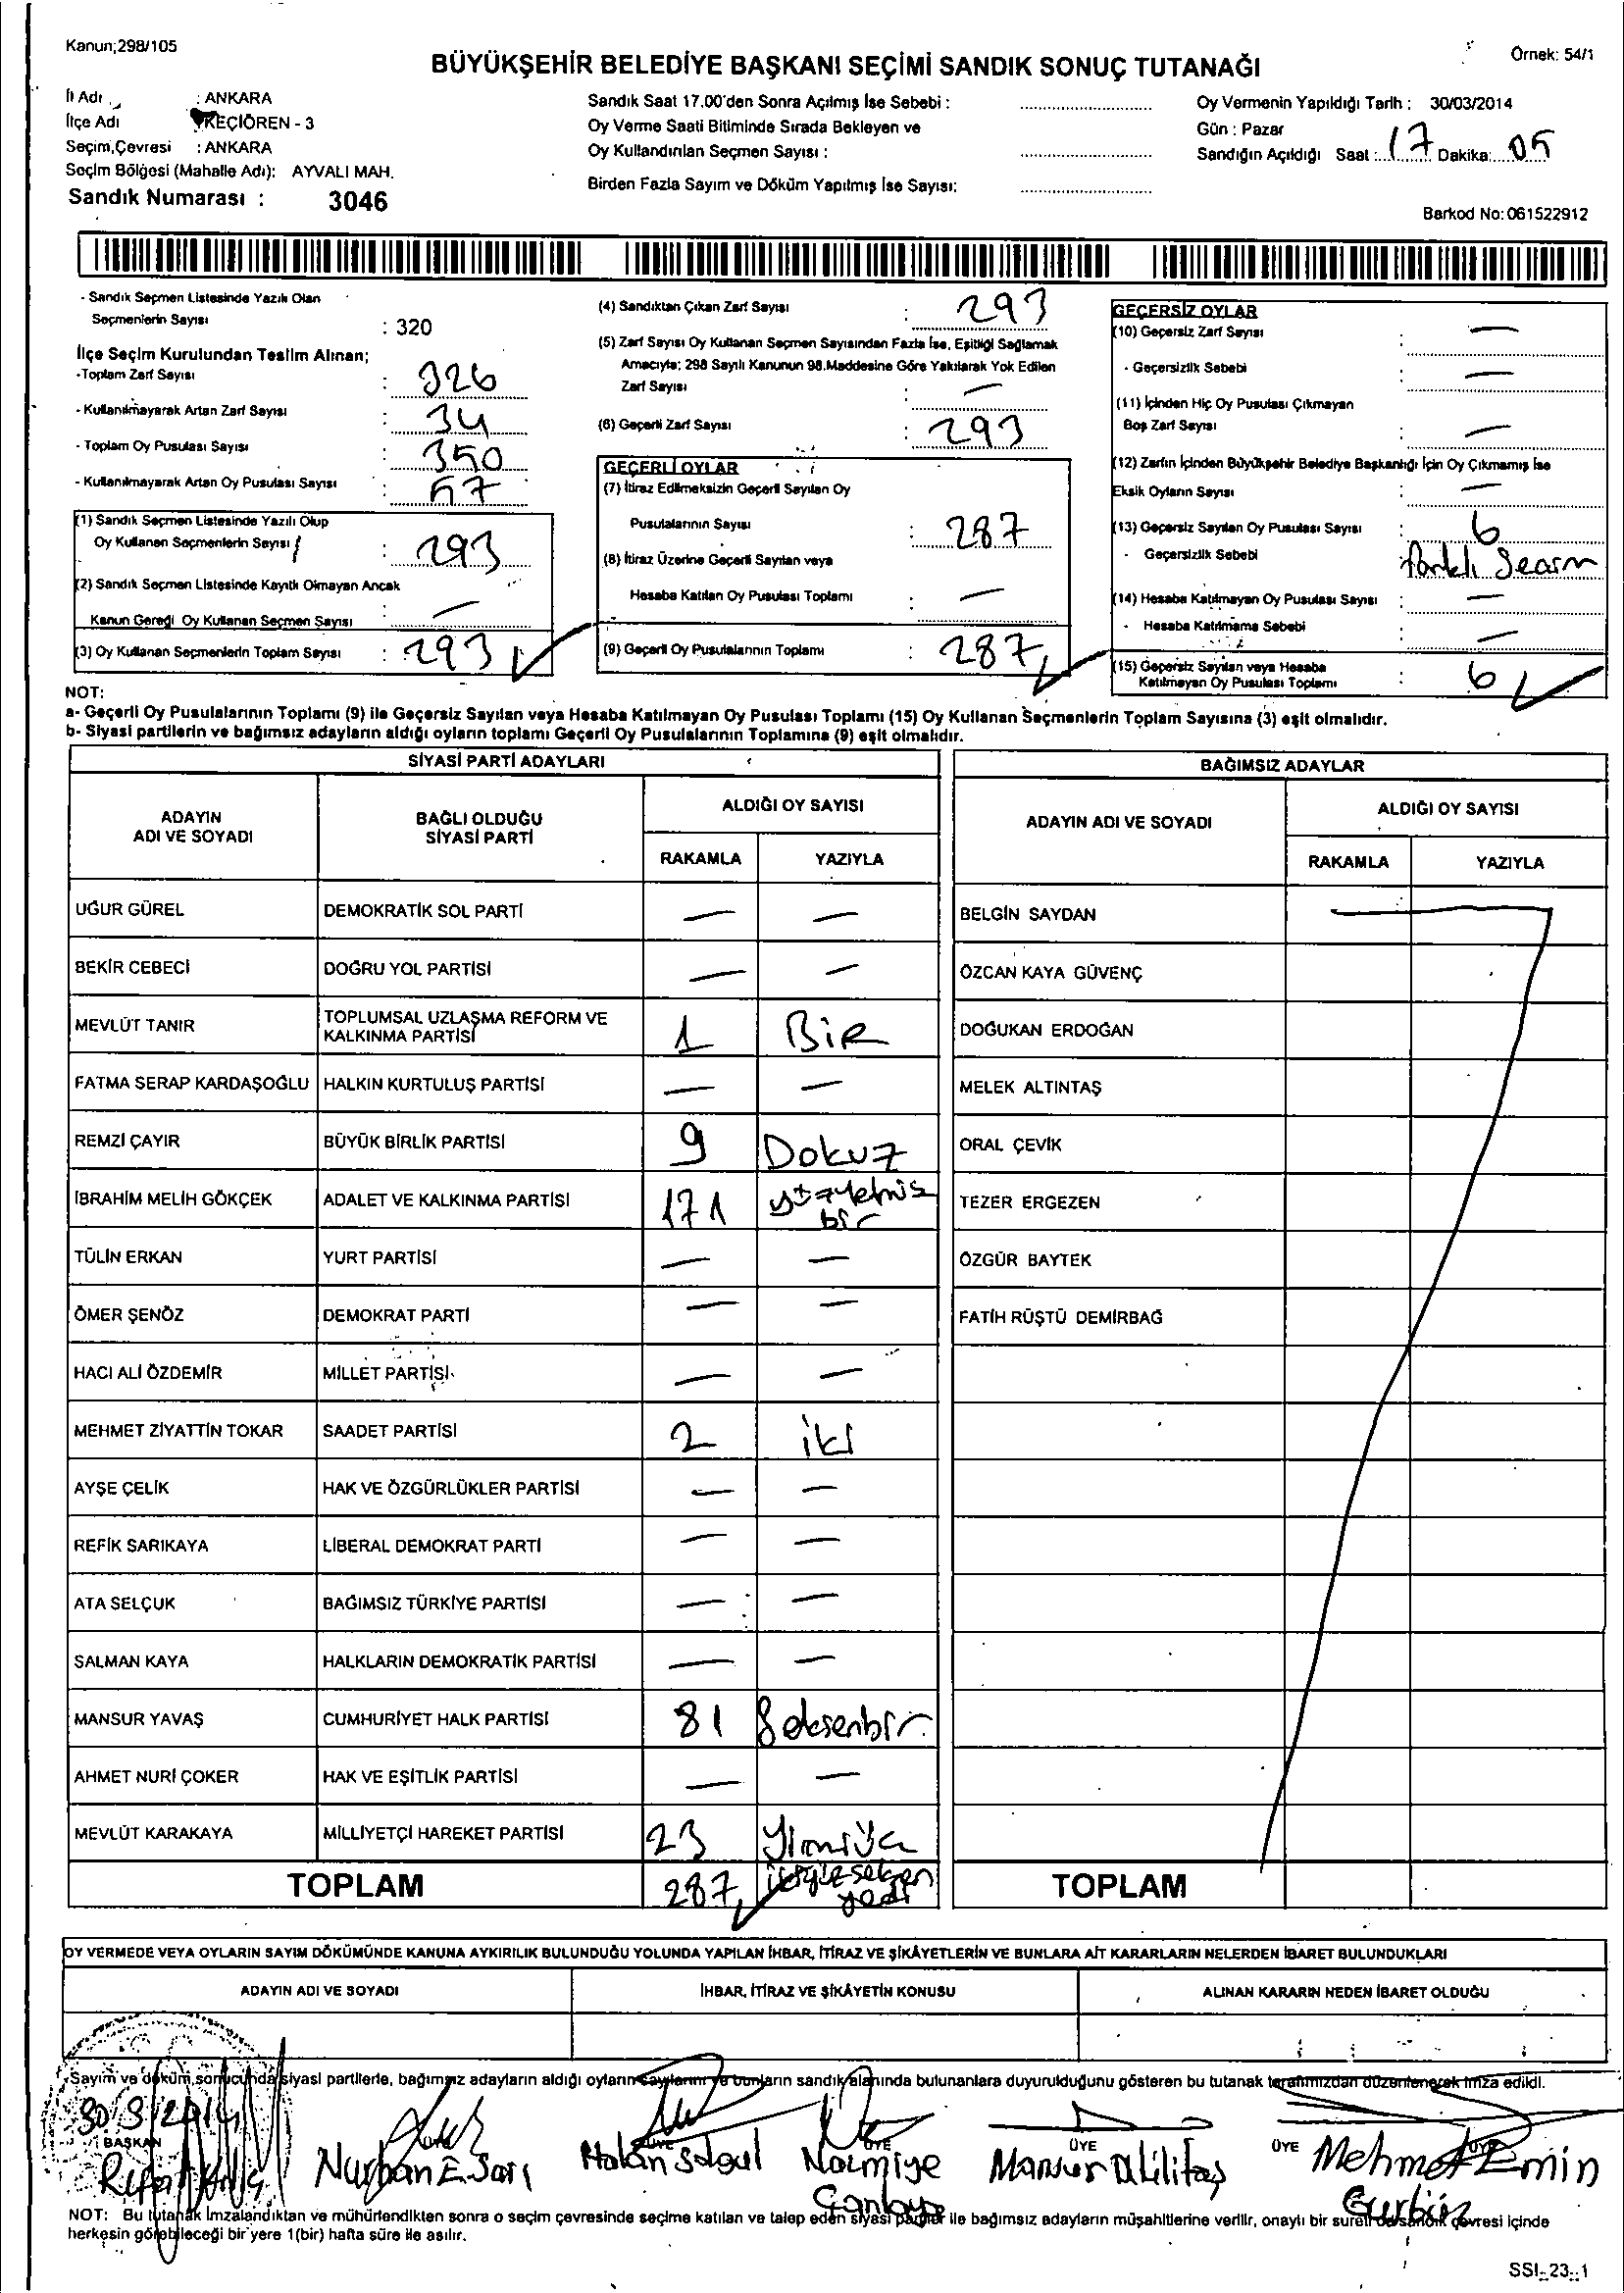 Kanun;298/105
Örnek: 54/1
BÜYÜKŞEHİR BELEDİYE BAŞKANI SEÇİMİ SANDIK SONUÇ TUTANAĞI
İl Adı : ANKARA
İlçe Adı KEÇİÖREN - 3
Seçim Çevresi : ANKARA
Seçim Bölgesi (Mahalle Adı): AYVALI MAH.
Sandık Numarası : 3046
Sandık Saat 17.00'den Sonra Açılmış İse Sebebi :
Oy Verme Saati Bitiminde Sırada Bekleyen ve
Oy Kullandırılan Seçmen Sayısı :
Birden Fazla Sayım ve Döküm Yapılmış İse Sayısı:
Oy Vermenin Yapıldığı Tarih : 30/03/2014
Gün : Pazar
Sandığın Açıldığı Saat : 17 Dakika: 05
Barkod No: 061522912
- Sandık Seçmen Listesinde Yazılı Olan
Seçmenlerin Sayısı : 320
İlçe Seçim Kurulundan Teslim Alınan;
-Toplam Zarf Sayısı : 326
- Kullanılmayarak Artan Zarf Sayısı : 34
- Toplam Oy Pusulası Sayısı : 350
- Kullanılmayarak Artan Oy Pusulası Sayısı : 57
(1) Sandık Seçmen Listesinde Yazılı Olup
Oy Kullanan Seçmenlerin Sayısı : 293
(2) Sandık Seçmen Listesinde Kayıtlı Olmayan Ancak
Kanun Gereği Oy Kullanan Seçmen Sayısı : —
(3) Oy Kullanan Seçmenlerin Toplam Sayısı : 293
(4) Sandıktan Çıkan Zarf Sayısı : 293
(5) Zarf Sayısı Oy Kullanan Seçmen Sayısından Fazla İse, Eşitliği Sağlamak
Amacıyla; 298 Sayılı Kanunun 98.Maddesine Göre Yakılarak Yok Edilen
Zarf Sayısı : —
(6) Geçerli Zarf Sayısı : 293
GEÇERLİ OYLAR
(7) İtiraz Edilmeksizin Geçerli Sayılan Oy
Pusulalarının Sayısı : 287
(8) İtiraz Üzerine Geçerli Sayılan veya
Hesaba Katılan Oy Pusulası Toplamı : —
(9) Geçerli Oy Pusulalarının Toplamı : 287
GEÇERSİZ OYLAR
(10) Geçersiz Zarf Sayısı : —
- Geçersizlik Sebebi : —
(11) İçinden Hiç Oy Pusulası Çıkmayan
Boş Zarf Sayısı : —
(12) Zarfın İçinden Büyükşehir Belediye Başkanlığı İçin Oy Çıkmamış İse
Eksik Oyların Sayısı : —
(13) Geçersiz Sayılan Oy Pusulası Sayısı : 6
- Geçersizlik Sebebi : farklı
(14) Hesaba Katılmayan Oy Pusulası Sayısı : —
- Hesaba Katılmama Sebebi : —
(15) Geçersiz Sayılan veya Hesaba
Katılmayan Oy Pusulası Toplamı : 6
NOT:
a- Geçerli Oy Pusulalarının Toplamı (9) ile Geçersiz Sayılan veya Hesaba Katılmayan Oy Pusulası Toplamı (15) Oy Kullanan Seçmenlerin Toplam Sayısına (3) eşit olmalıdır.
b- Siyasi partilerin ve bağımsız adayların aldığı oyların toplamı Geçerli Oy Pusulalarının Toplamına (9) eşit olmalıdır.
SİYASİ PARTİ ADAYLARI
ADAYIN ADI VE SOYADI BAĞLI OLDUĞU SİYASİ PARTİ ALDIĞI OY SAYISI
RAKAMLA YAZIYLA
UĞUR GÜREL DEMOKRATİK SOL PARTİ — —
BEKİR CEBECİ DOĞRU YOL PARTİSİ — —
MEVLÜT TANIR TOPLUMSAL UZLAŞMA REFORM VE KALKINMA PARTİSİ 1 BİR
FATMA SERAP KARDAŞOĞLU HALKIN KURTULUŞ PARTİSİ — —
REMZİ ÇAYIR BÜYÜK BİRLİK PARTİSİ 9 Dokuz
İBRAHİM MELİH GÖKÇEK ADALET VE KALKINMA PARTİSİ 171 yüzyetmiş bir
TÜLİN ERKAN YURT PARTİSİ — —
ÖMER ŞENÖZ DEMOKRAT PARTİ — —
HACI ALİ ÖZDEMİR MİLLET PARTİSİ — —
MEHMET ZİYATTİN TOKAR SAADET PARTİSİ 2 iki
AYŞE ÇELİK HAK VE ÖZGÜRLÜKLER PARTİSİ — —
REFİK SARIKAYA LİBERAL DEMOKRAT PARTİ — —
ATA SELÇUK BAĞIMSIZ TÜRKİYE PARTİSİ — —
SALMAN KAYA HALKLARIN DEMOKRATİK PARTİSİ — —
MANSUR YAVAŞ CUMHURİYET HALK PARTİSİ 81 Seksenbir
AHMET NURİ ÇOKER HAK VE EŞİTLİK PARTİSİ — —
MEVLÜT KARAKAYA MİLLİYETÇİ HAREKET PARTİSİ 23 Yirmiüç
TOPLAM 287 ikiyüzseksen yedi
BAĞIMSIZ ADAYLAR
ADAYIN ADI VE SOYADI ALDIĞI OY SAYISI
RAKAMLA YAZIYLA
BELGİN SAYDAN
ÖZCAN KAYA GÜVENÇ
DOĞUKAN ERDOĞAN
MELEK ALTINTAŞ
ORAL ÇEVİK
TEZER ERGEZEN
ÖZGÜR BAYTEK
FATİH RÜŞTÜ DEMİRBAĞ
TOPLAM
OY VERMEDE VEYA OYLARIN SAYIM DÖKÜMÜNDE KANUNA AYKIRILIK BULUNDUĞU YOLUNDA YAPILAN İHBAR, İTİRAZ VE ŞİKÂYETLERİN VE BUNLARA AİT KARARLARIN NELERDEN İBARET BULUNDUKLARI
ADAYIN ADI VE SOYADI İHBAR, İTİRAZ VE ŞİKÂYETİN KONUSU ALINAN KARARIN NEDEN İBARET OLDUĞU
Sayım ve döküm sonucunda siyasi partilerle, bağımsız adayların aldığı oyların sayılarını ve bunların sandık alanında bulunanlara duyurulduğunu gösteren bu tutanak tarafımızdan düzenlenerek imza edildi.
30/3/2014
BAŞKAN ÜYE ÜYE ÜYE ÜYE
Nurhan E. Sarı Hakan Mansur Mehmet Emin
Gürbüz
NOT: Bu tutanak İmzalandıktan ve mühürlendikten sonra o seçim çevresinde seçime katılan ve talep eden siyasi partiler ile bağımsız adayların müşahitlerine verilir, onaylı bir sureti de sandık çevresi içinde
herkesin görebileceği bir yere 1(bir) hafta süre ile asılır.
SSI_23_1